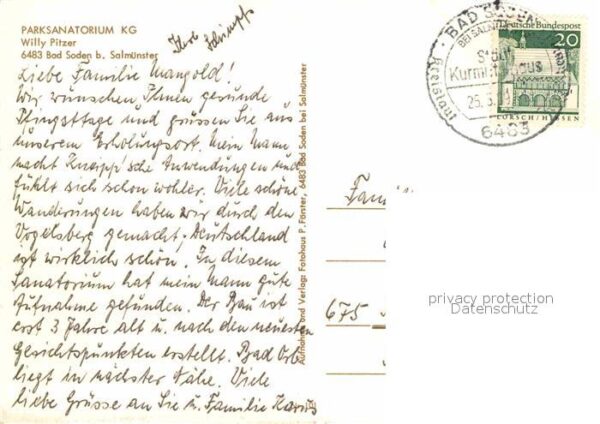 PARKSANATORIUM KG
Willy Pitzer
6483 Bad Soden b. Salmünster
Liebe Familie Mangold!
Wir wünschen Ihnen gesunde
Pfingsttage und grüssen Sie aus
unserem Erholungsort. Mein Mann
macht Kneipp'sche Anwendungen und
fühlt sich schon wohler. Viele schöne
Wanderungen haben wir durch den
Vogelsberg gemacht. Deutschland
ist wirklich schön. In diesem
Sanatorium hat mein Mann gute
Aufnahme gefunden. Der Bau ist
erst 3 Jahre alt u. nach den neuesten
Gesichtspunkten erstellt. Bad Orb
liegt in nächster Nähe. Viele
liebe Grüsse an Sie u. Familie
Aufnahme und Verlag: Fotohaus P. Förster, 6483 Bad Soden bei Salmünster
BAD SODEN
6483
Deutsche Bundespost
20
LORSCH/HESSEN
Fam
675
privacy protection
Datenschutz